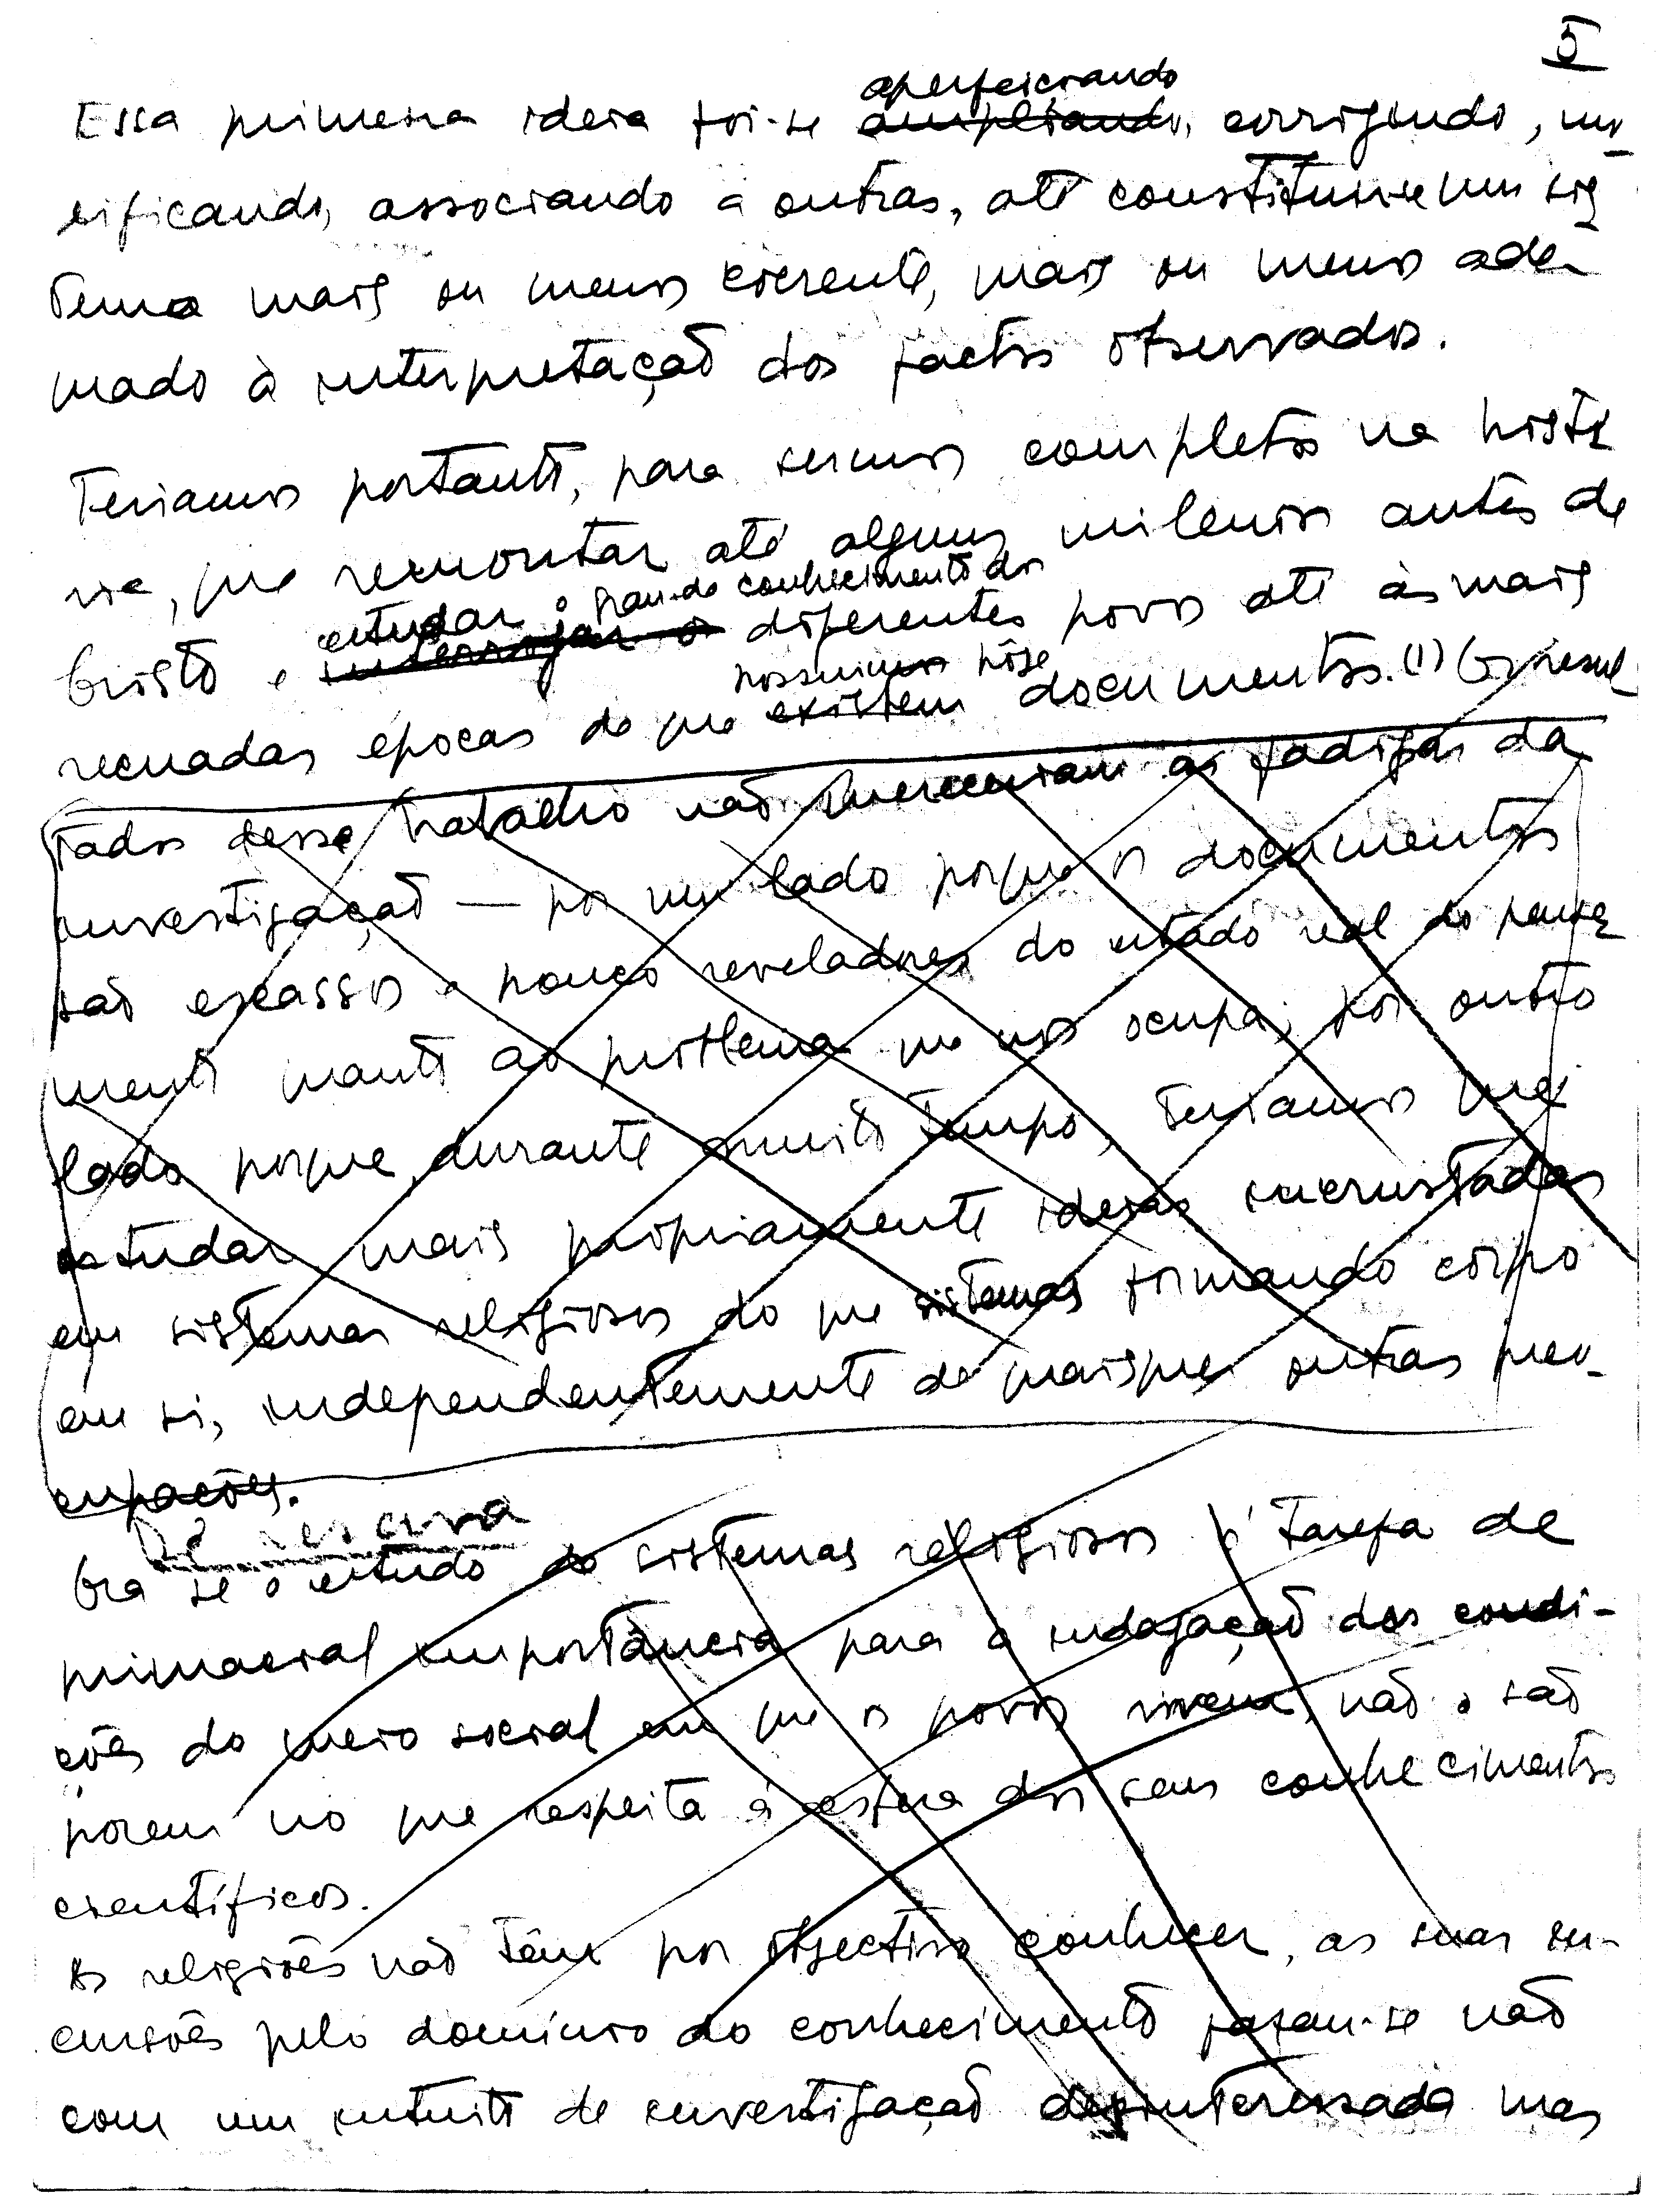 5
aperfeiçoando
Essa primeira ideia foi-se ampliando, corrigindo, uni
ificando, associando a outras, até constituir-se um sis
tema mais ou menos coerente, mais ou menos ade
quado à interpretação dos factos observados.
Teriamos portanto, para sermos completos na histó
ria, que remontar até alguns milenios antes de
estudar o grau de conhecimento dos
Cristo e interrogar os diferentes povos até às mais
possuimos hoje
recuadas épocas de que existem documentos. (1) Os resul
tados desse trabalho não mereceriam as fadigas da
investigação — por um lado porque os documentos
são escassos e pouco reveladores do estado real do pensa
mento quanto ao problema que nos ocupa; por outro
lado porque, durante muito tempo, teriamos que
estudar mais propriamente ideias incrustadas
em sistemas religiosos do que sistemas formando corpo
em si, independentemente de quaisquer outras preo-
cupações.
De reserva
Ora se o estudo de sistemas religiosos é tarefa de
primacial importância para a indagação das condi-
ções do meio social em que os povos vivem, não o são
porem no que respeita à esfera dos seus conhecimentos
científicos.
As religiões não têm por objectivo conhecer, as suas in-
cursões pelo domínio do conhecimento fazem-se não
com um intuito de investigação desinteressada mas